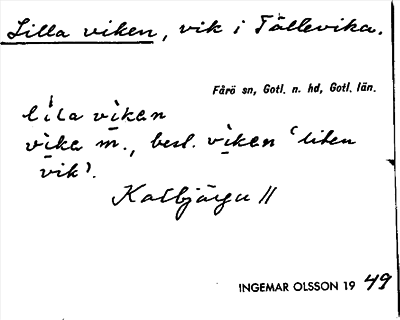 Lilla viken, vik i Tällevika.
Fårö sn, Gotl. n. hd, Gotl. län.
lila viken
vika m., best. viken 'liten
vik'.
Kalbjärga II
INGEMAR OLSSON 19 49